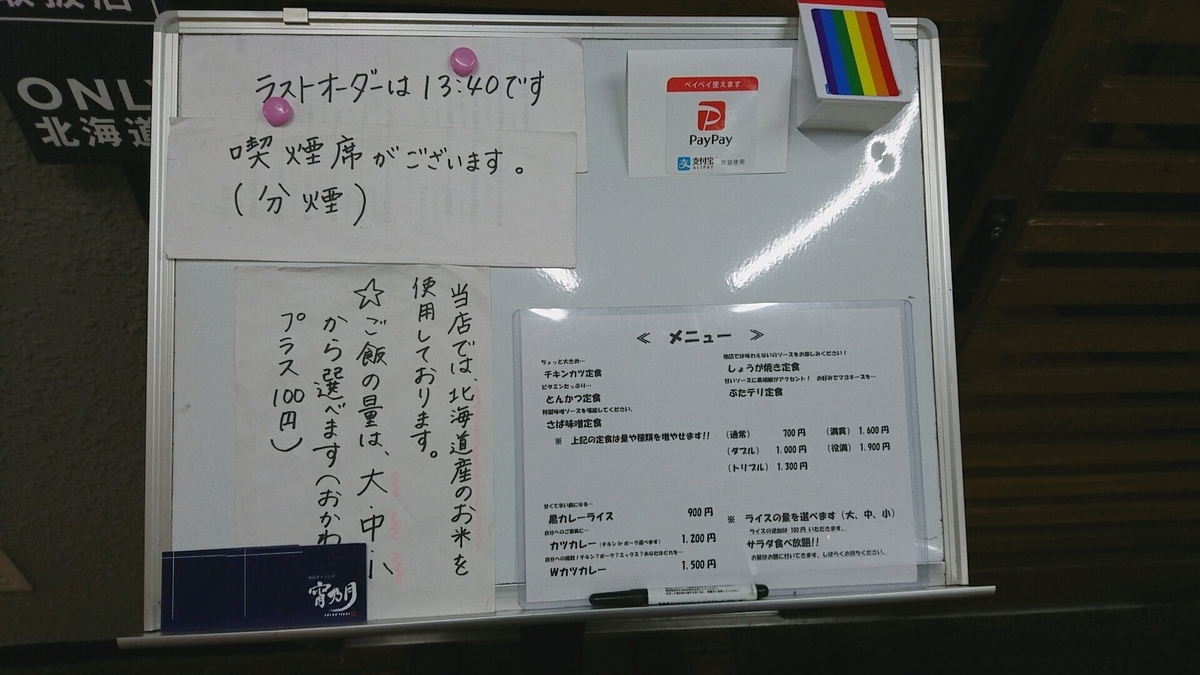 ONLY
北海道
ラストオーダーは13:40です
喫煙席がございます。
(分煙)
当店では、北海道産のお米を
使用しております。
☆ご飯の量は、大・中・小
から選べます(おかわ
プラス100円)
ペイペイ使えます
PayPay
支付宝
ALIPAY
欢迎使用
≪ メニュー ≫
ちょっと大きめ…
チキンカツ定食
ビタミンたっぷり…
とんかつ定食
特製味噌ソースを堪能してください。
さば味噌定食
※ 上記の定食は量や種類を増やせます!!
他店では味わえないのソースをお楽しみください!
しょうが焼き定食
甘いソースに黒胡椒がアクセント! お好みでマヨネーズを…
ぶたテリ定食
(通常) 700円 (満貫) 1.600円
(ダブル) 1.000円 (役満) 1.900円
(トリプル) 1.300円
甘くて辛い癖になる…
黒カレーライス 900円
自分へのご褒美に…
カツカレー(チキン or ポーク選べます) 1.200円
自分への挑戦!チキン?ポーク?ミックス?あなたはどれを…
Wカツカレー 1.500円
※ ライスの量を選べます(大、中、小)
ライスの追加は100円いただきます。
サラダ食べ放題!!
お昼はお膳に付いてきます。しばらくお待ちください。
宵乃月